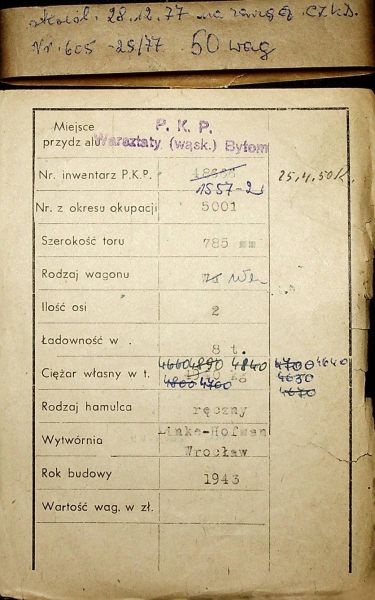 28.12.77 na
Nr. 605-25/77 50 wag
P. K. P.
Miejsce
przydziału Warsztaty (wąsk.) Bytom
Nr. inwentarz P.K.P.
1557-2 25.4.50r.
Nr. z okresu okupacji 5001
Szerokość toru 785 mm
Rodzaj wagonu
Ilość osi 2
Ładowność w . 8 t.
4660 4890 4840 4700 4640
Ciężar własny w t. kg 4630
4800 4760 4670
Rodzaj hamulca ręczny
Wytwórnia Linke-Hofman
Wrocław
Rok budowy 1943
Wartość wag. w zł.